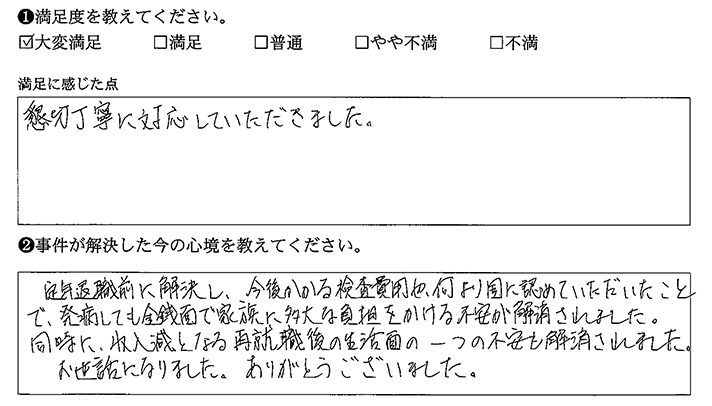 ❶満足度を教えてください。
☑大変満足 □満足 □普通 □やや不満 □不満
満足に感じた点
懇切丁寧に対応していただきました。
❷事件が解決した今の心境を教えてください。
定年退職前に解決し、今後かかる検査費用や、何より国に認めていただいたこと
で、発病しても金銭面で家族に多大な負担をかける不安が解消されました。
同時に、収入減となる再就職後の生活面の一つの不安も解消されました。
お世話になりました。ありがとうございました。